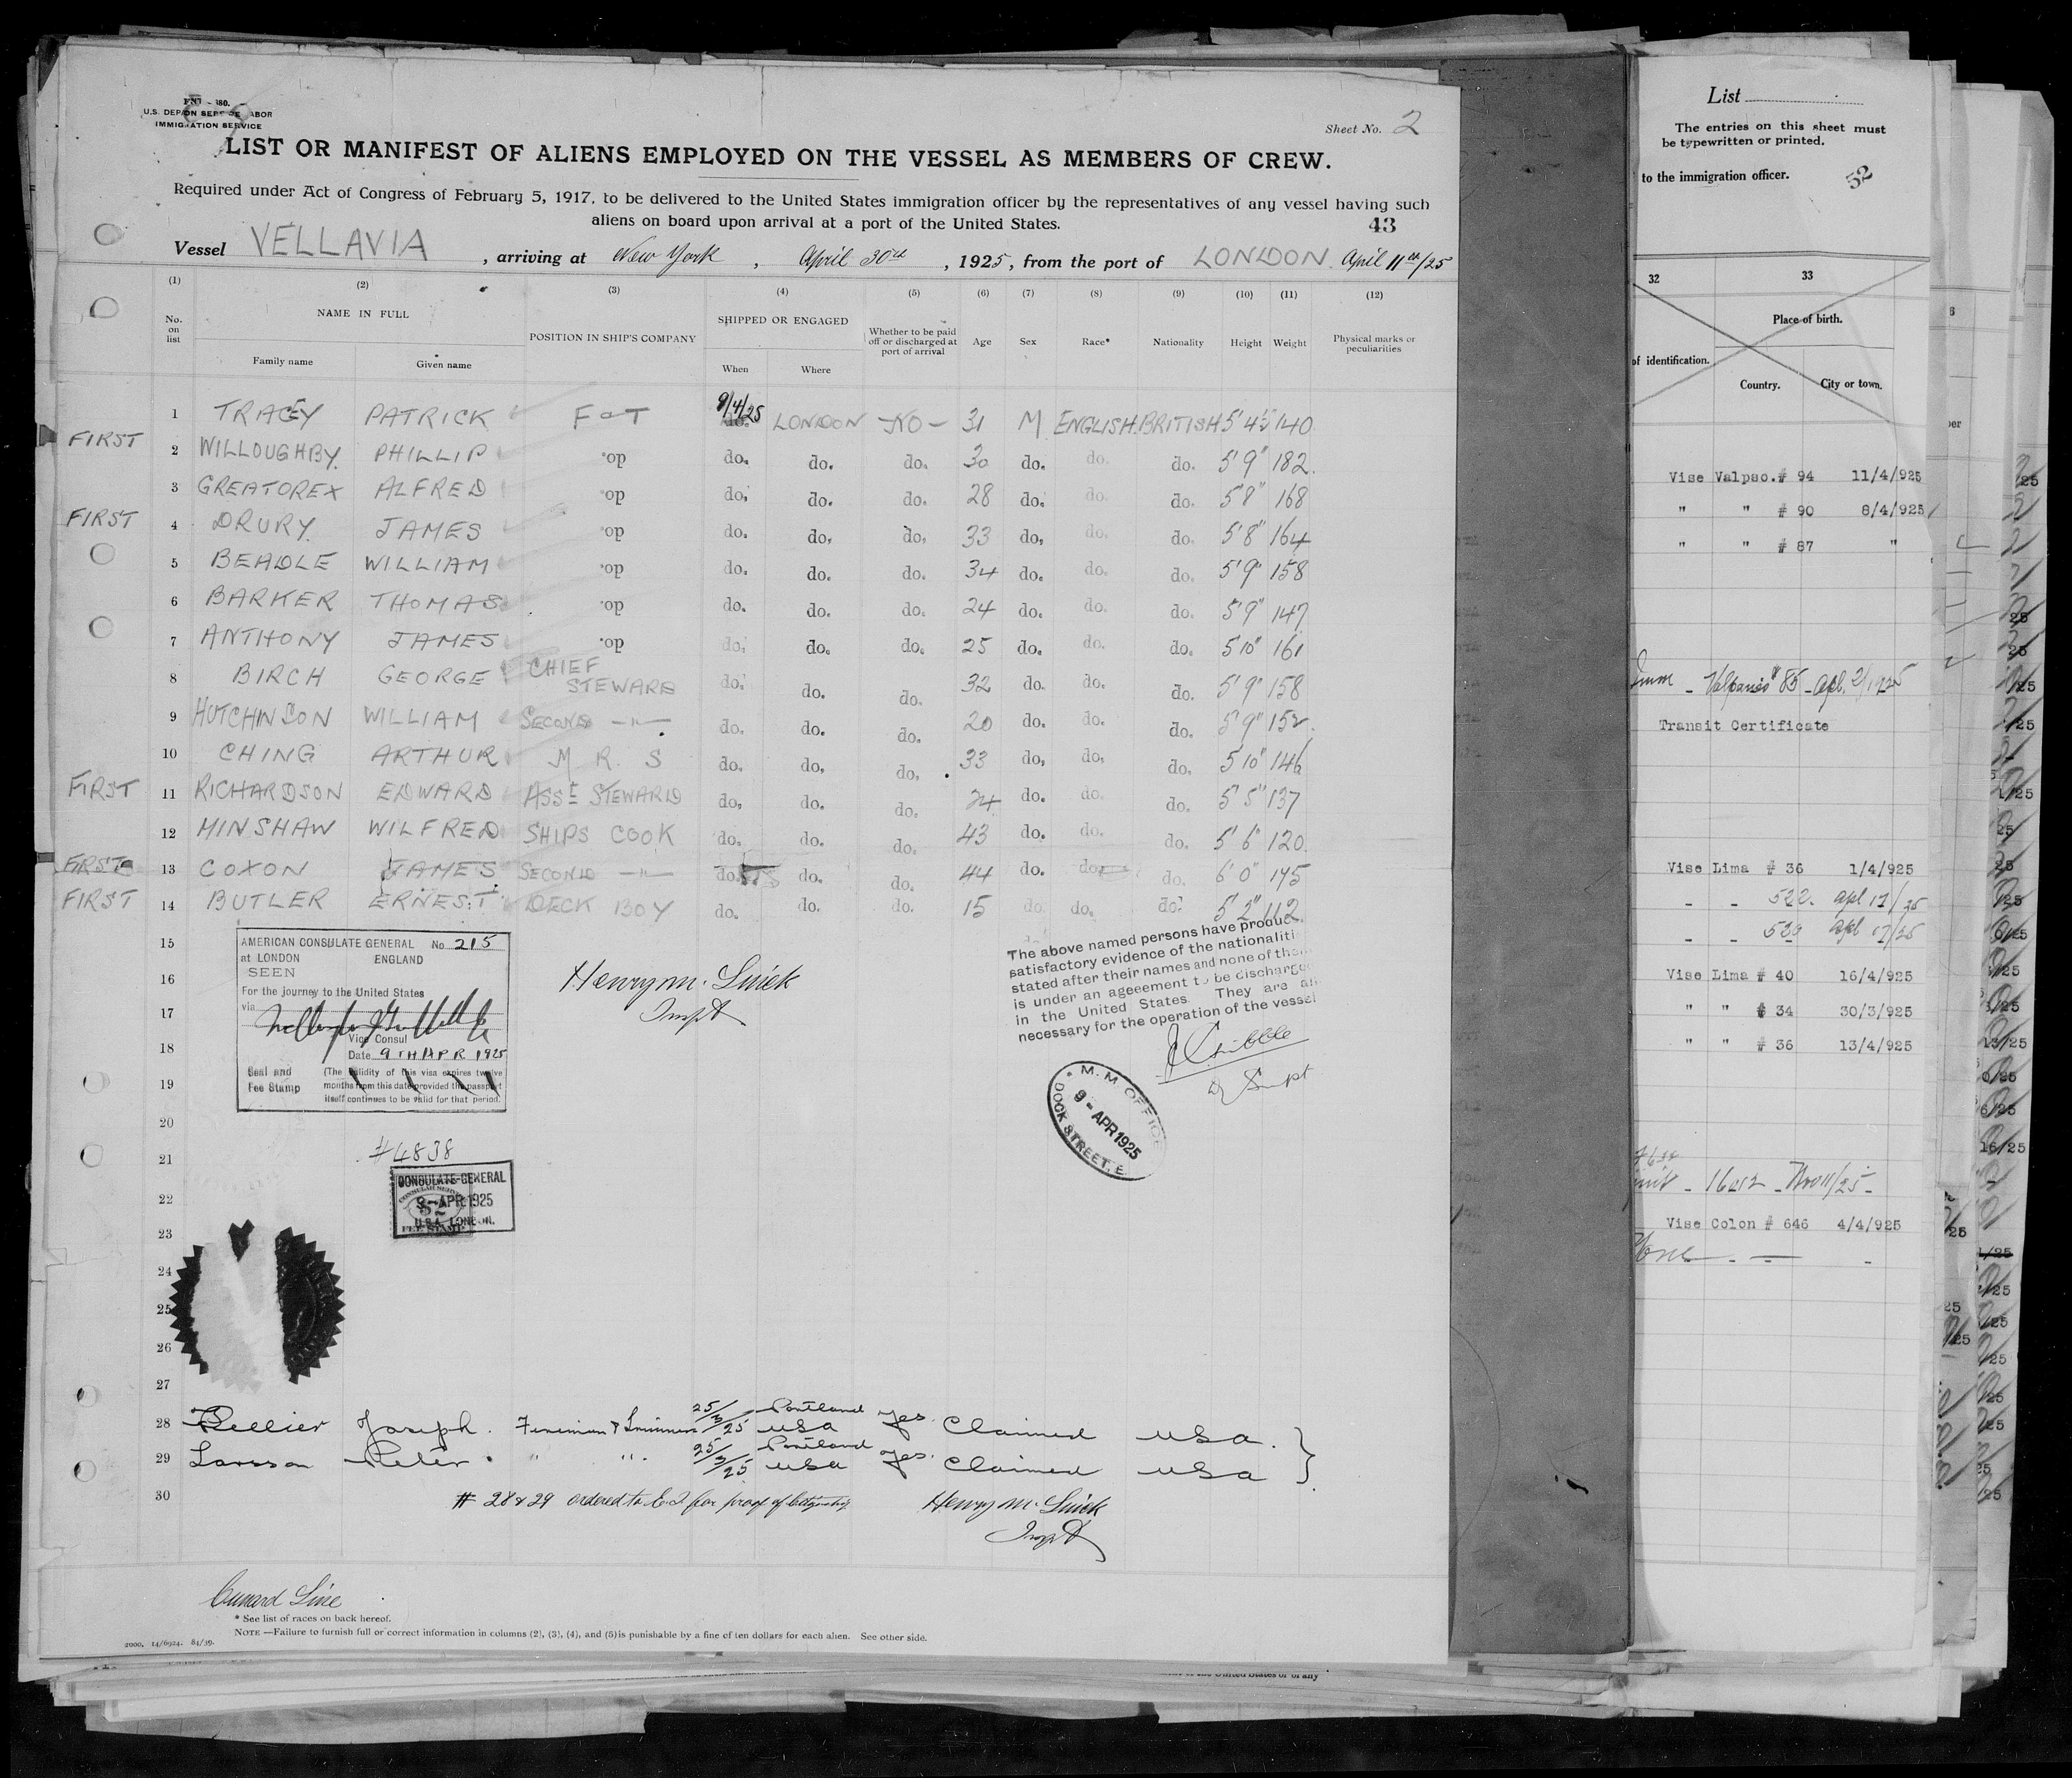 U.S. DEP
IMMIGRATION SERVICE
Sheet No. 2
LIST OR MANIFEST OF ALIENS EMPLOYED ON THE VESSEL AS MEMBERS OF CREW.
Required under Act of Congress of February 5, 1917, to be delivered to the United States immigration officer by the representatives of any vessel having such
aliens on board upon arrival at a port of the United States. 43
Vessel VELLAVIA, arriving at New York, April 30th, 1925, from the port of LONDON. April 11th/25
(1) (2) (3) (4) (5) (6) (7) (8) (9) (10) (11) (12)
No. on list NAME IN FULL POSITION IN SHIP'S COMPANY SHIPPED OR ENGAGED Whether to be paid off or discharged at port of arrival Age Sex Race* Nationality Height Weight Physical marks or peculiarities
Family name Given name When Where
1 TRACEY PATRICK F & T 9/4/25 LONDON -NO- 31 M ENGLISH. BRITISH 5' 4½" 140
FIRST 2 WILLOUGHBY. PHILLIP do. do. do. do. 30 do. do. do. 5' 9" 182.
3 GREATOREX ALFRED do. do. do. do. 28 do. do. do. 5' 8" 168
FIRST 4 DRURY. JAMES do. do. do. do. 33 do. do. do. 5' 8" 164
5 BEADLE WILLIAM do. do. do. do. 34 do. do. do. 5' 9" 158
6 BARKER THOMAS do. do. do. do. 24 do. do. do. 5' 9" 147
7 ANTHONY JAMES do. do. do. do. 25 do. do. do. 5' 10" 161
8 BIRCH GEORGE CHIEF STEWARD do. do. do. 32 do. do. do. 5' 9" 158
9 HUTCHINSON WILLIAM SECOND —"— do. do. do. 20 do. do. do. 5' 9" 152.
10 CHING ARTHUR M. R. S do. do. do. 33 do. do. do. 5' 10" 146
FIRST 11 RICHARDSON EDWARD ASST STEWARD do. do. do. 24 do. do. do. 5' 5" 137
12 MINSHAW WILFRED SHIPS COOK do. do. do. 43 do. do. do. 5' 6" 120.
FIRST 13 COXON JAMES SECOND —"— do. do. do. 44 do. do. do. 6' 0" 175
FIRST 14 BUTLER ERNEST DECK BOY do. do. do. 15 do. do. do. 5' 2" 112.
15
16
17
18
19
20
21
22
23
24
25
26
27
AMERICAN CONSULATE GENERAL No. 215
at LONDON ENGLAND
SEEN
For the journey to the United States
via
Vice Consul
Date 9TH APR 1925
Seal and Fee Stamp
(The validity of this visa expires twelve
months from this date provided the passport
itself continues to be valid for that period.
Henry M.
Inspt
The above named persons have produc
satisfactory evidence of the nationaliti
stated after their names and none of the
is under an ageeement to be discharge
in the United States They are al
necessary for the operation of the vessel
Supt
M. M. OFFICE
9 - APR 1925
DOCK STREET, E.
#4838
CONSULATE-GENERAL
9 - APR 1925
U.S.A. LONDON.
28 Joseph. Fireman & Trimmer 25/3/25 Portland USA yes. Claimed USA.
29 Larsson Peter. " " 25/3/25 Portland USA yes. Claimed USA
30
# 28 & 29 ordered to E.I. for proof of citizenship
Henry M.
Inspt
Cunard Line
* See list of races on back hereof.
NOTE —Failure to furnish full or correct information in columns (2), (3), (4), and (5) is punishable by a fine of ten dollars for each alien. See other side.
2000. 14/6924. 84/59.
List
The entries on this sheet must
be typewritten or printed.
to the immigration officer. 52
32 33
Place of birth.
of identification. Country. City or town.
Vise Valpso. # 94 11/4/925
" " # 90 8/4/925
" " # 87 "
Valparaiso # 85 - apl. 2/1925
Transit Certificate
Vise Lima # 36 1/4/925
- - 522. apl 17/25
- - 530 apl 17/25
Vise Lima # 40 16/4/925
" " # 34 30/3/925
" " # 36 13/4/925
Nov 11/25 -
Vise Colon # 646 4/4/925